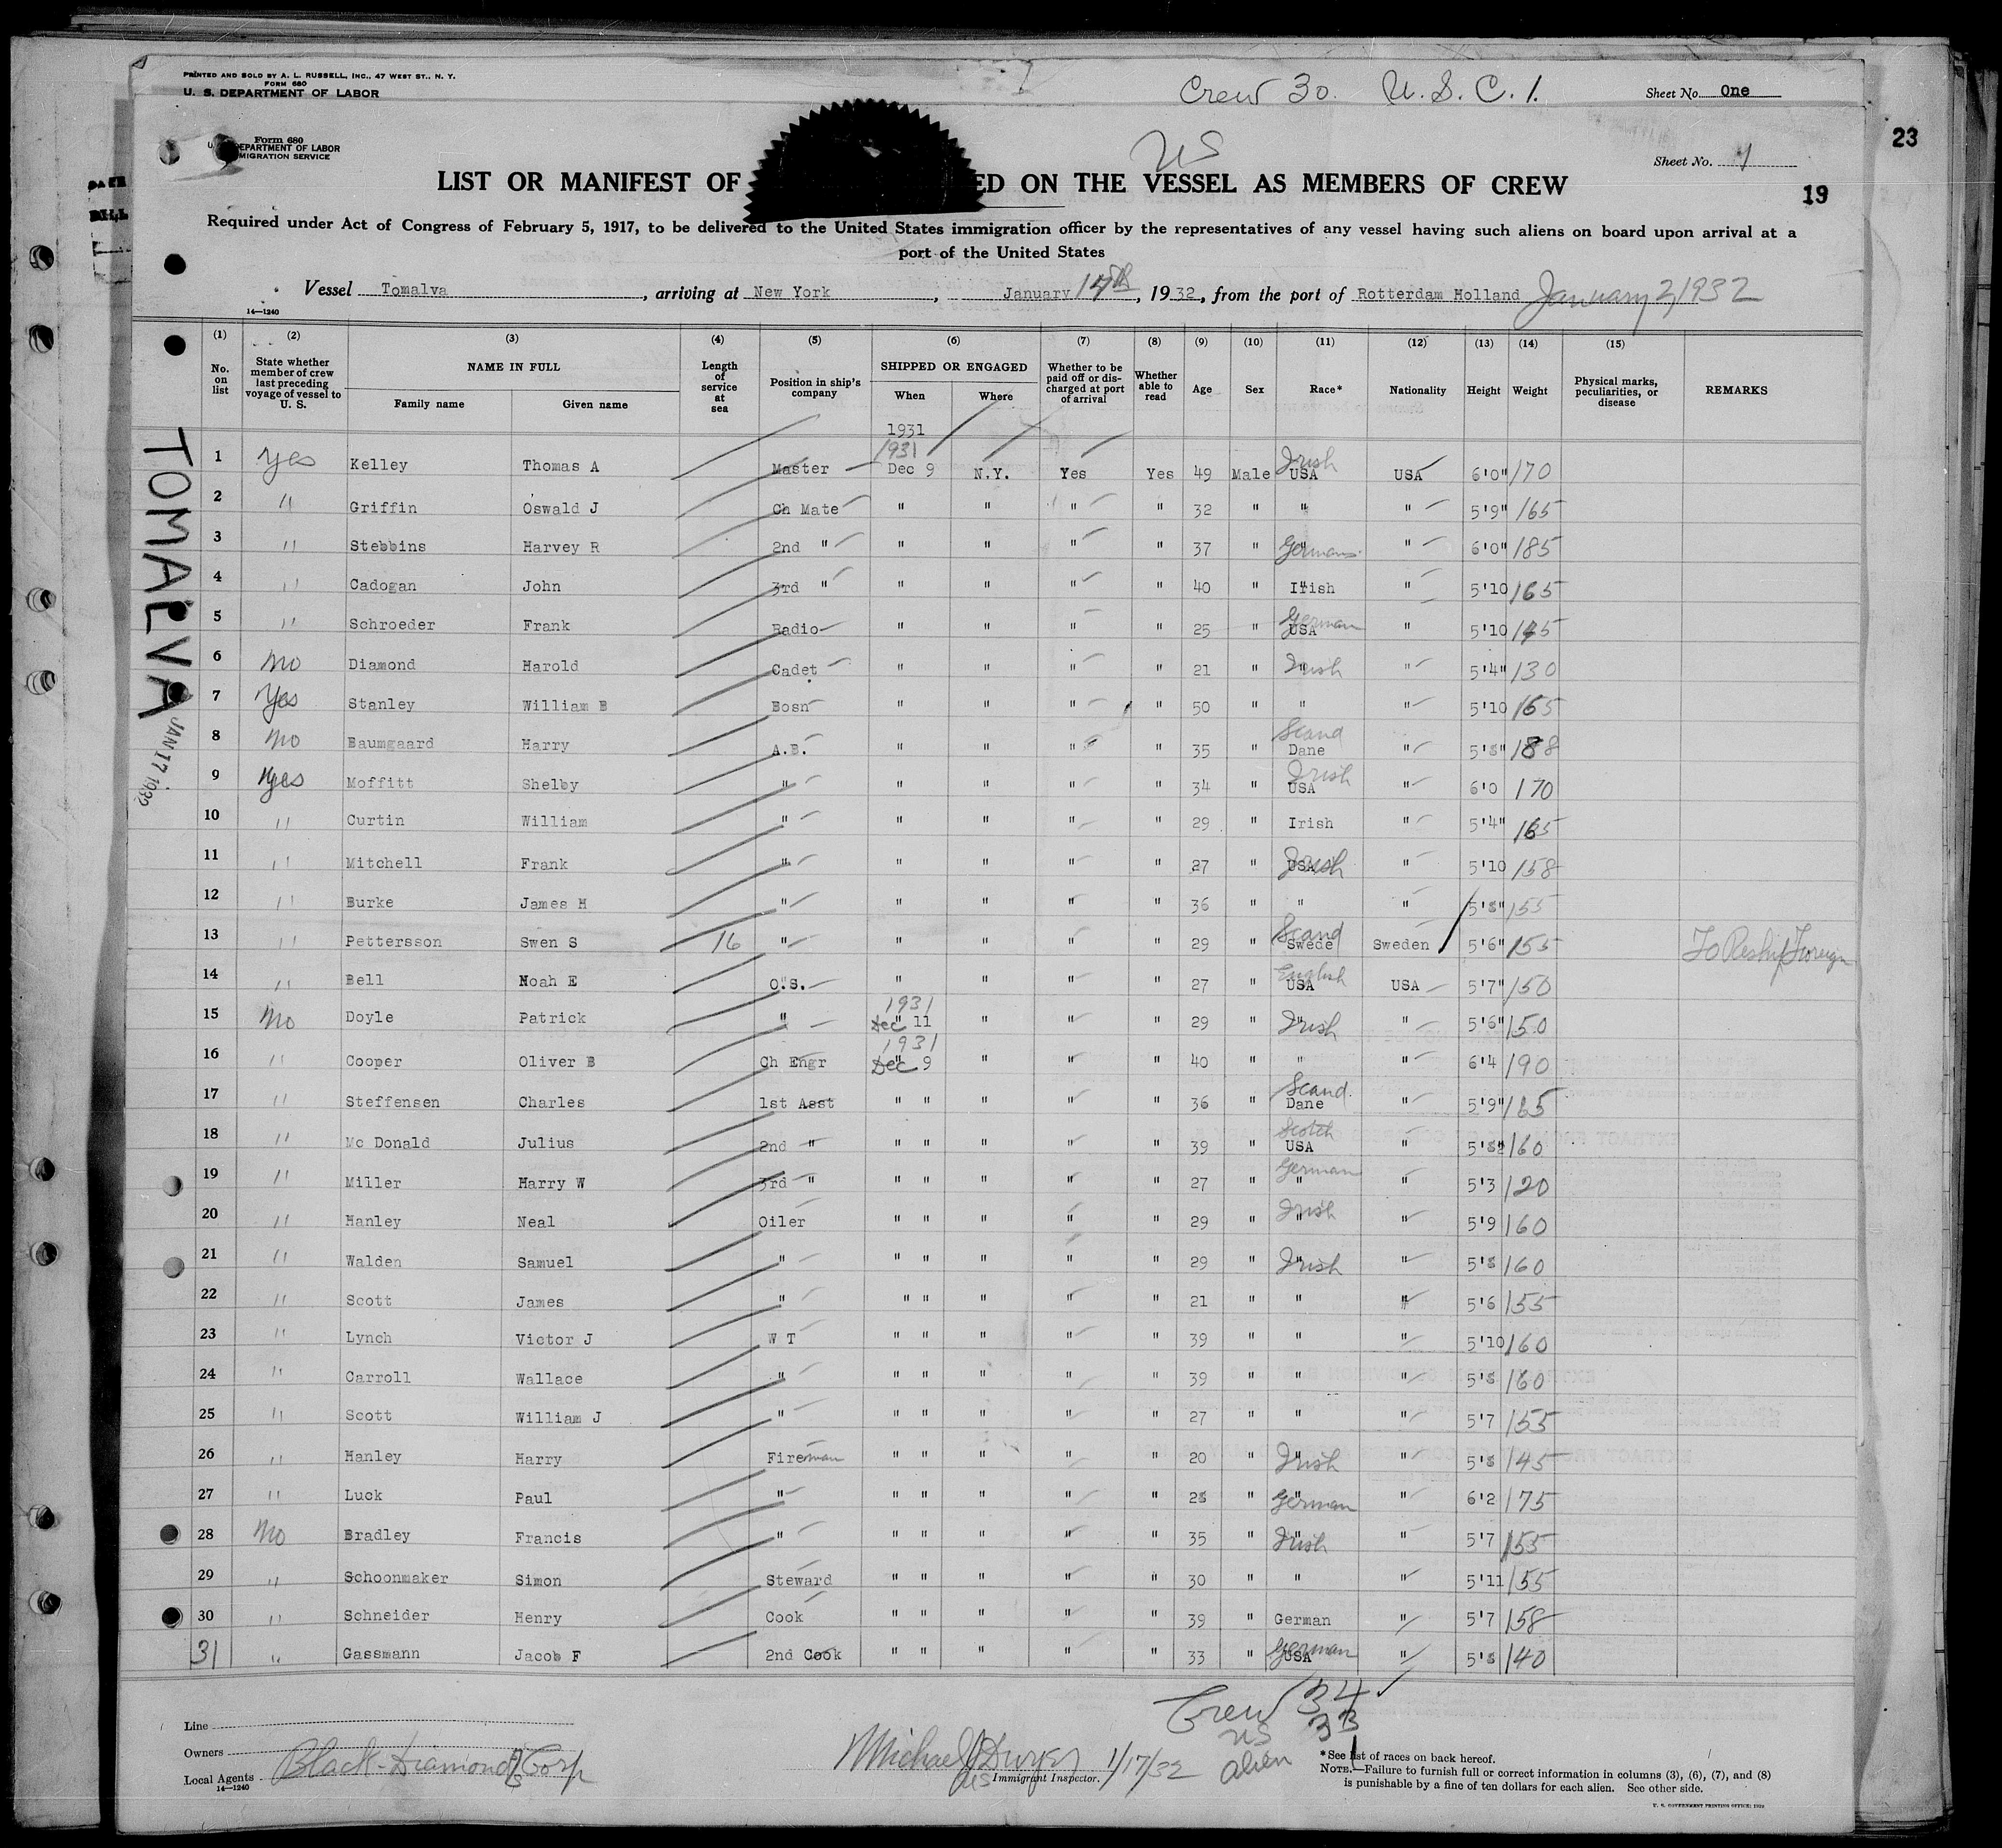 PRINTED AND SOLD BY A. L. RUSSELL, INC., 47 WEST ST., N. Y.
FORM 680
U. S. DEPARTMENT OF LABOR
Crew 30. U. S. C. 1.
Sheet No. One
23
Form 680
DEPARTMENT OF LABOR
MIGRATION SERVICE
US
Sheet No. 1
LIST OR MANIFEST OF ED ON THE VESSEL AS MEMBERS OF CREW
19
Required under Act of Congress of February 5, 1917, to be delivered to the United States immigration officer by the representatives of any vessel having such aliens on board upon arrival at a
port of the United States
Vessel Tomalva, arriving at New York, January 17th, 1932, from the port of Rotterdam Holland January 2, 1932
14—1240
(1) (2) (3) (4) (5) (6) (7) (8) (9) (10) (11) (12) (13) (14) (15)
No. on list
State whether member of crew last preceding voyage of vessel to U. S.
NAME IN FULL
Family name Given name
Length of service at sea
Position in ship's company
SHIPPED OR ENGAGED
When Where
Whether to be paid off or discharged at port of arrival
Whether able to read
Age Sex Race* Nationality Height Weight
Physical marks, peculiarities, or disease
REMARKS
TOMALVA JAN 17 1932
1931
1931
1 Yes Kelley Thomas A Master Dec 9 N.Y. Yes Yes 49 Male USA Irish USA 6'0" 170
2 " Griffin Oswald J Ch Mate " " " " 32 " " " 5'9" 165
3 " Stebbins Harvey R 2nd " " " " " 37 " " German " 6'0" 185
4 " Cadogan John 3rd " " " " " 40 " Irish " 5'10 165
5 " Schroeder Frank Radio " " " " 25 " USA German " 5'10 145
6 No Diamond Harold Cadet " " " " 21 " " Irish " 5'4" 130
7 Yes Stanley William B Bosn " " " " 50 " " " 5'10 165
8 No Baumgaard Harry A.B. " " " " 35 " Scand Dane " 5'8" 188
9 Yes Moffitt Shelby " " " " " 34 " Irish USA " 6'0 170
10 " Curtin William " " " " " 29 " Irish " 5'4" 165
11 " Mitchell Frank " " " " " 27 " USA Irish " 5'10 158
12 " Burke James H " " " " " 36 " " " 5'8" 155
13 " Pettersson Swen S 16 " " " " " 29 " Scand Swede Sweden 5'6" 155 To Reship Foreign
14 " Bell Noah E O.S. " " " " 27 " English USA USA 5'7" 150
1931
15 No Doyle Patrick " Dec 11 " " " 29 " " Irish " 5'6" 150
1931
16 " Cooper Oliver B Ch Engr Dec 9 " " " 40 " " " 6'4 190
17 " Steffensen Charles 1st Asst " " " " " 36 " Scand. Dane " 5'9" 165
18 " Mc Donald Julius 2nd " " " " " " 39 " Scotch USA " 5'8" 160
19 " Miller Harry W 3rd " " " " " " 27 " German " " 5'3 120
20 " Hanley Neal Oiler " " " " " 29 " Irish " " 5'9 160
21 " Walden Samuel " " " " " " 29 " Irish " " 5'8 160
22 " Scott James " " " " " " 21 " " " 5'6 155
23 " Lynch Victor J W T " " " " " 39 " " " 5'10 160
24 " Carroll Wallace " " " " " " 39 " " " 5'8 160
25 " Scott William J " " " " " " 27 " " " 5'7 155
26 " Hanley Harry Fireman " " " " " 20 " Irish " " 5'8 145
27 " Luck Paul " " " " " " 28 " German " " 6'2 175
28 No Bradley Francis " " " " " " 35 " Irish " " 5'7 155
29 " Schoonmaker Simon Steward " " " " " 30 " " " 5'11 155
30 " Schneider Henry Cook " " " " " 39 " German " 5'7 158
31 " Gassmann Jacob F 2nd Cook " " " " " 33 " German USA " 5'8 140
Crew 34
US 33
alien 1
Line
Owners
Local Agents Black Diamond SS Corp
14—1240
Michael J Dwyer 1/17/32
US Immigrant Inspector.
*See list of races on back hereof.
NOTE.—Failure to furnish full or correct information in columns (3), (6), (7), and (8)
is punishable by a fine of ten dollars for each alien. See other side.
U. S. GOVERNMENT PRINTING OFFICE: